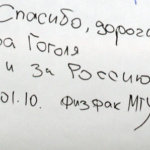 Спасибо, дорого
ра Гоголя
и за Россию
01.10. Физфак МГУ